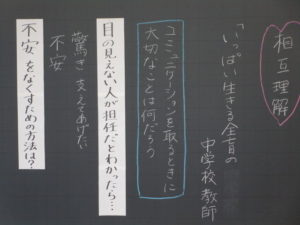 相互理解
「いっぱい生きる全盲の
中学校教師
コミュニケーションを取るときに
大切なことは何だろう
目の見えない人が担任だとわかったら…
驚き 支えてあげたい
不安
不安をなくすための方法は?